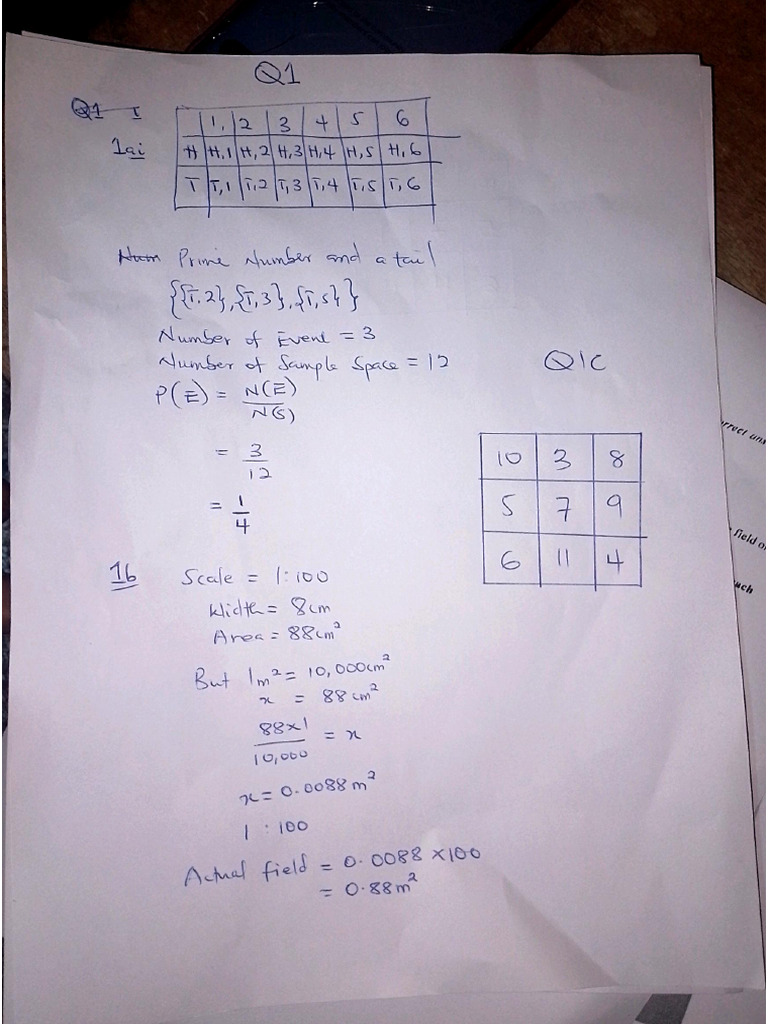 Q1
Q1 I
1ai
1, 2 3 4 5 6
H H,1 H,2 H,3 H,4 H,5 H,6
T T,1 T,2 T,3 T,4 T,5 T,6
Num Prime Number and a tail
{{T,2},{T,3},{T,5}}
Number of Event = 3
Number of Sample Space = 12
P(E) = N(E)
N(S)
= 3
12
= 1
4
Q1C
10 3 8
5 7 9
6 11 4
1b Scale = 1:100
Width = 8cm
Area = 88cm²
But 1m² = 10,000cm²
x = 88cm²
88x1
10,000 = x
x = 0.0088m²
1 : 100
Actual field = 0.0088 x100
= 0.88m²
field